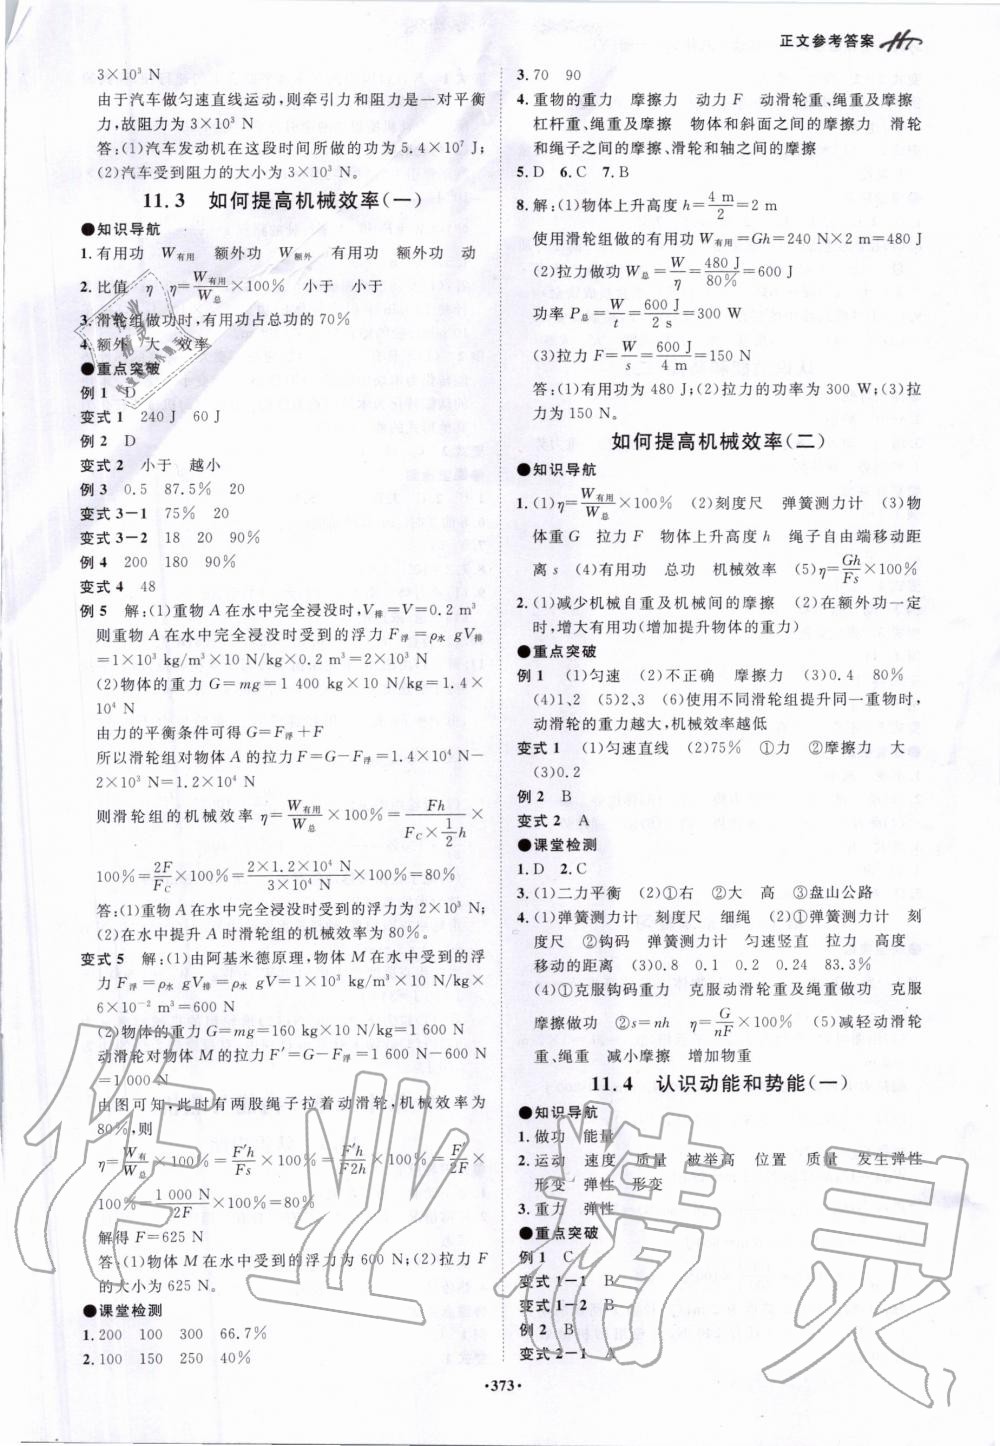 正文参考答案
3×10³ N
由于汽车做匀速直线运动,则牵引力和阻力是一对平衡
力,故阻力为 3×10³ N
答:(1)汽车发动机在这段时间所做的功为 5.4×10⁷ J;
(2)汽车受到阻力的大小为 3×10³ N。
11.3 如何提高机械效率(一)
●知识导航
1. 有用功 W有用 额外功 W额外 有用功 额外功 动
2. 比值 η η=W有用/W总×100% 小于 小于
3. 滑轮组做功时,有用功占总功的 70%
4. 额外 大 效率
●重点突破
例 1 D
变式 1 240 J 60 J
例 2 D
变式 2 小于 越小
例 3 0.5 87.5% 20
变式 3-1 75% 20
变式 3-2 18 20 90%
例 4 200 180 90%
变式 4 48
例 5 解:(1)重物 A 在水中完全浸没时,V排=V=0.2 m³
则重物 A 在水中完全浸没时受到的浮力 F浮=ρ水 gV排
=1×10³ kg/m³×10 N/kg×0.2 m³=2×10³ N
(2)物体的重力 G=mg=1 400 kg×10 N/kg=1.4×
10⁴ N
由力的平衡条件可得 G=F浮+F
所以滑轮组对物体 A 的拉力 F=G-F浮=1.4×10⁴ N-
2×10³ N=1.2×10⁴ N
则滑轮组的机械效率 η=W有用/W总×100%=Fh/(FC×1/2h)×
100%=2F/FC×100%=2×1.2×10⁴ N/3×10⁴ N×100%=80%
答:(1)重物 A 在水中完全浸没时受到的浮力为 2×10³ N;
(2)在水中提升 A 时滑轮组的机械效率为 80%。
变式 5 解:(1)由阿基米德原理,物体 M 在水中受到的浮
力 F浮=ρ水 gV排=ρ水 gV=1×10³ kg/m³×10 N/kg×
6×10⁻² m³=600 N
(2)物体的重力 G=mg=160 kg×10 N/kg=1 600 N
动滑轮对物体 M 的拉力 F′=G-F浮=1 600 N-600 N
=1 000 N
由图可知,此时有两股绳子拉着动滑轮,机械效率为
80%,则
η=W有/W总×100%=F′h/Fs×100%=F′h/F2h×100%=F′/2F×
100%=1 000 N/2F×100%=80%
解得 F=625 N
答:(1)物体 M 在水中受到的浮力为 600 N;(2)拉力 F
的大小为 625 N。
●课堂检测
1. 200 100 300 66.7%
2. 100 150 250 40%
3. 70 90
4. 重物的重力 摩擦力 动力 F 动滑轮重、绳重及摩擦
杠杆重、绳重及摩擦 物体和斜面之间的摩擦力 滑轮
和绳子之间的摩擦、滑轮和轴之间的摩擦
5. D 6. C 7. B
8. 解:(1)物体上升高度 h=4 m/2=2 m
使用滑轮组做的有用功 W有用=Gh=240 N×2 m=480 J
(2)拉力做功 W总=W/η=480 J/80%=600 J
功率 P总=W/t=600 J/2 s=300 W
(3)拉力 F=W/s=600 J/4 m=150 N
答:(1)有用功为 480 J;(2)拉力的功率为 300 W;(3)拉
力为 150 N。
如何提高机械效率(二)
●知识导航
1. (1)η=W有用/W总×100% (2)刻度尺 弹簧测力计 (3)物
体重 G 拉力 F 物体上升高度 h 绳子自由端移动距
离 s (4)有用功 总功 机械效率 (5)η=Gh/Fs×100%
2. (1)减少机械自重及机械间的摩擦 (2)在额外功一定
时,增大有用功(增加提升物体的重力)
●重点突破
例 1 (1)匀速 (2)不正确 摩擦力 (3)0.4 80%
(4)1、2 (5)2、3 (6)使用不同滑轮组提升同一重物时,
动滑轮的重力越大,机械效率越低
变式 1 (1)匀速直线 (2)75% ①力 ②摩擦力 大
(3)0.2
例 2 B
变式 2 A
●课堂检测
1. D 2. C
3. (1)二力平衡 (2)①右 ②大 高 ③盘山公路
4. (1)弹簧测力计 刻度尺 细绳 (2)①弹簧测力计 刻
度尺 ②钩码 弹簧测力计 匀速竖直 拉力 高度
移动的距离 (3)0.8 0.1 0.2 0.24 83.3%
(4)①克服钩码重力 克服动滑轮重及绳重做功 克服
摩擦做功 ②s=nh η=G/nF×100% (5)减轻动滑轮
重、绳重 减小摩擦 增加物重
11.4 认识动能和势能(一)
●知识导航
1. 做功 能量
2. 运动 速度 质量 被举高 位置 质量 发生弹性
形变 弹性 形变
3. 重力 弹性
●重点突破
例 1 C
变式 1-1 B
变式 1-2 B
例 2 B
变式 2-1 A
·373·
作业精灵